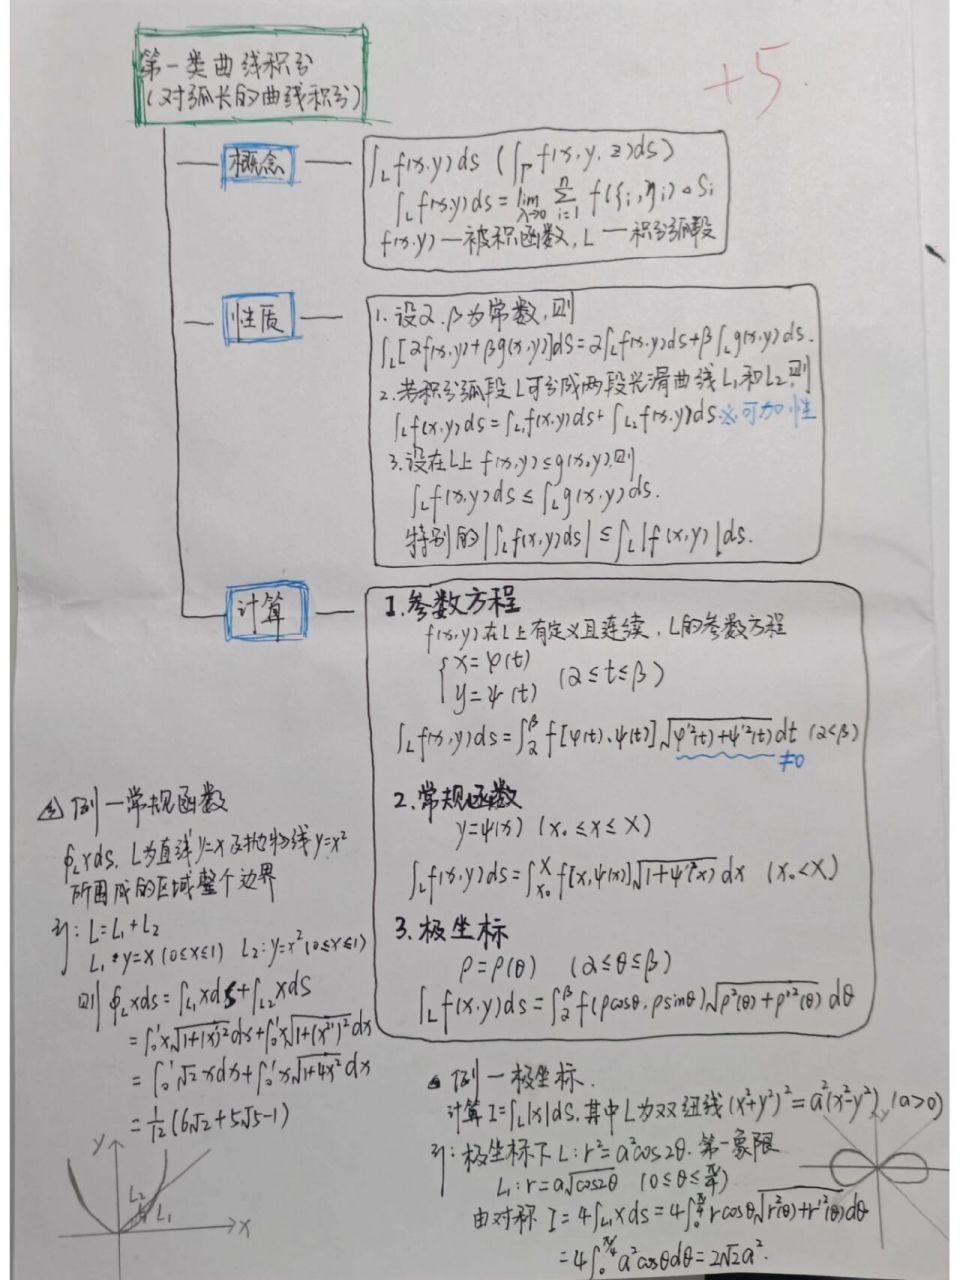 第一类曲线积分
(对弧长的曲线积分)
+5
概念
∫_L f(x,y)ds (∫_Γ f(x,y,z)ds)
∫_L f(x,y)ds = lim_{λ→0} Σ_{i=1}^{n} f(ξi,ηi)△Si
f(x,y)—被积函数, L—积分弧段
性质
1.设α,β为常数,则
∫_L[αf(x,y)+βg(x,y)]ds=α∫_L f(x,y)ds+β∫_L g(x,y)ds.
2.若积分弧段L可分成两段光滑曲线L₁和L₂,则
∫_L f(x,y)ds=∫_{L₁}f(x,y)ds+∫_{L₂}f(x,y)ds.※可加性
3.设在L上 f(x,y)≤g(x,y),则
∫_L f(x,y)ds≤∫_L g(x,y)ds.
特别的|∫_L f(x,y)ds|≤∫_L|f(x,y)|ds.
计算
1.参数方程
f(x,y)在L上有定义且连续,L的参数方程
{x=φ(t)
y=ψ(t) (α≤t≤β)
∫_L f(x,y)ds=∫_α^β f[φ(t),ψ(t)]√(φ'²(t)+ψ'²(t))dt (α<β)
≠0
2.常规函数
y=ψ(x) (x₀≤x≤X)
∫_L f(x,y)ds=∫_{x₀}^X f[x,ψ(x)]√(1+ψ'²(x))dx (x₀<X)
3.极坐标
ρ=ρ(θ) (α≤θ≤β)
∫_L f(x,y)ds=∫_α^β f(ρcosθ,ρsinθ)√(ρ²(θ)+ρ'²(θ))dθ
例—常规函数
∮_L xds, L为直线y=x及抛物线y=x²
所围成的区域整个边界
L=L₁+L₂
L₁:y=x(0≤x≤1) L₂:y=x²(0≤x≤1)
则∮_L xds=∫_{L₁}xds+∫_{L₂}xds
=∫₀¹x√(1+(x)'²)dx+∫₀¹x√(1+(x²)'²)dx
=∫₀¹√2xdx+∫₀¹x√(1+4x²)dx
=1/12(6√2+5√5-1)
y
L₂
L₁
x
例—极坐标.
计算I=∫_L|x|ds,其中L为双纽线(x²+y²)²=a²(x²-y²) (a>0)
极坐标下L:r²=a²cos2θ.第一象限
L₁:r=a√cos2θ (0≤θ≤π/4)
由对称 I=4∫_{L₁}xds=4∫₀^{π/4}rcosθ√(r²(θ)+r'²(θ))dθ
=4∫₀^{π/4}a²cosθdθ=2√2a².